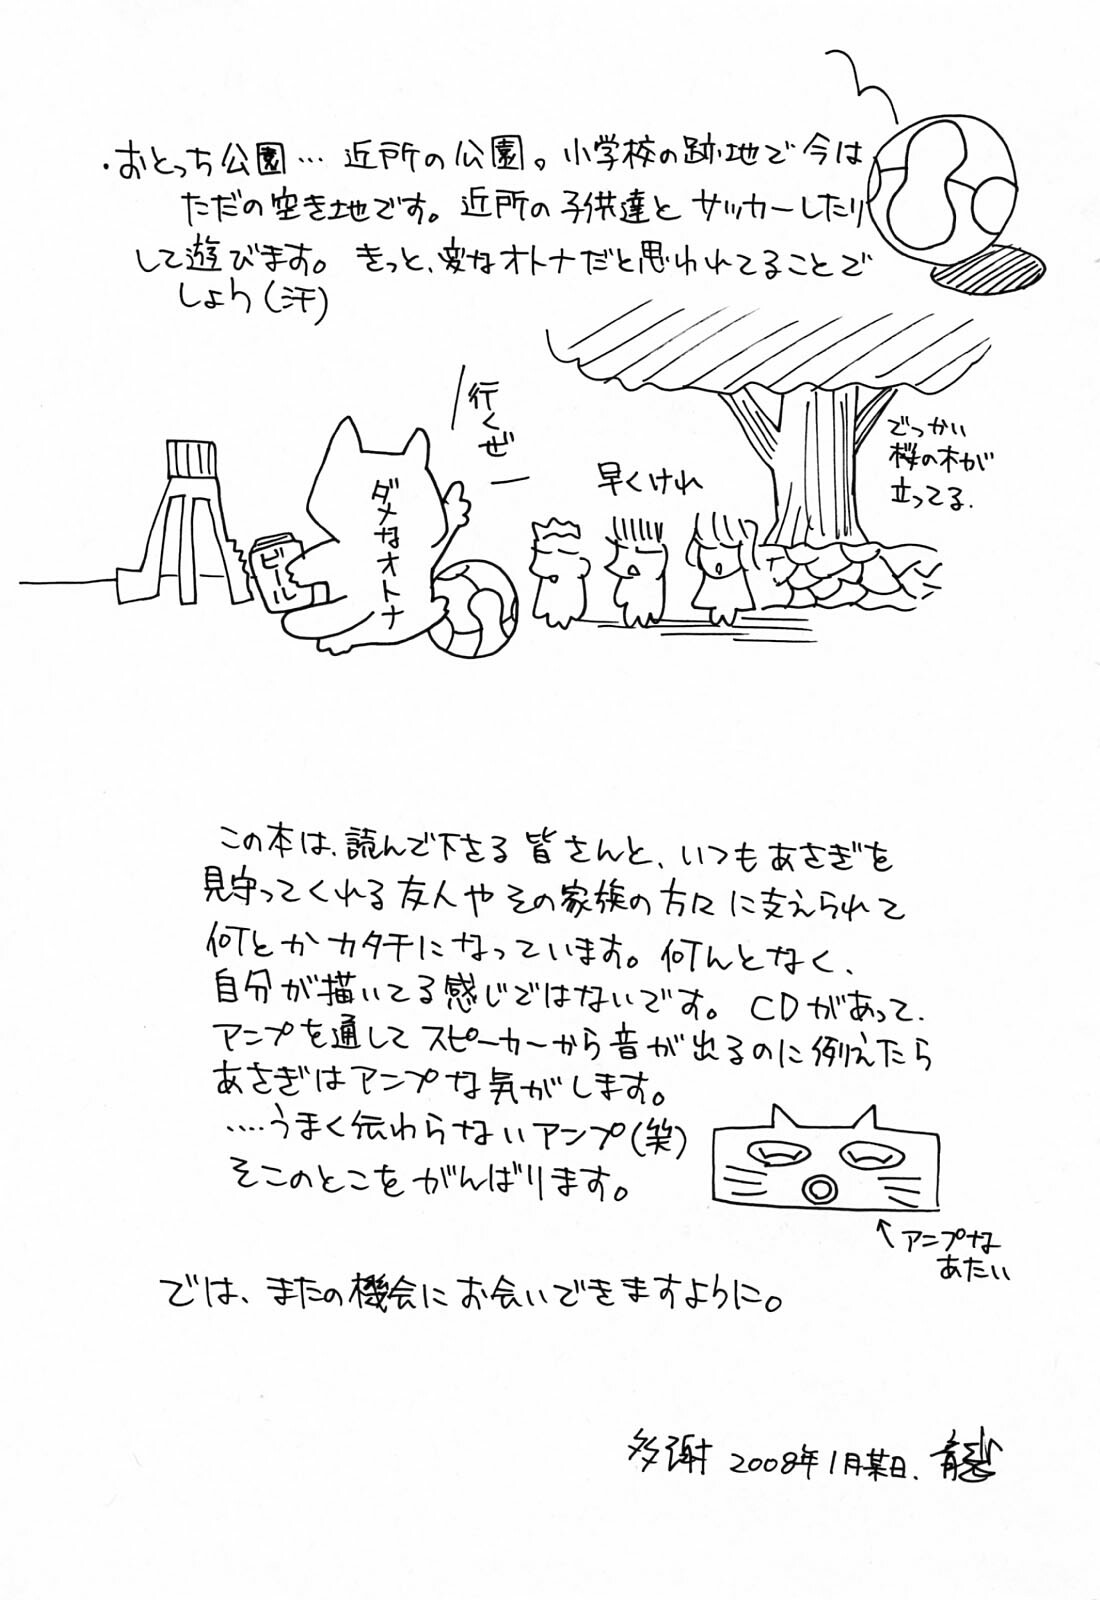 ・おとっち公園… 近所の公園。小学校の跡地で今は
ただの空き地です。近所の子供達とサッカーしたり
して遊びます。きっと、変なオトナだと思われてることで
しょう(汗)
行くぜ
ダメなオトナ
ビール
早くけれ
でっかい
桜の木が
立ってる.
この本は、読んで下さる皆さんと、いつもあさぎを
見守ってくれる友人やその家族の方々に支えられて
何とかカタチになっています。何んとなく、
自分が描いてる感じではないです。CDがあって、
アンプを通してスピーカーから音が出るのに例えたら
あさぎはアンプな気がします。
‥‥うまく伝わらないアンプ(笑)
そこのとこをがんばります。
↑アンプな
あたい
では、またの機会にお会いできますように。
多謝 2008年1月某日.